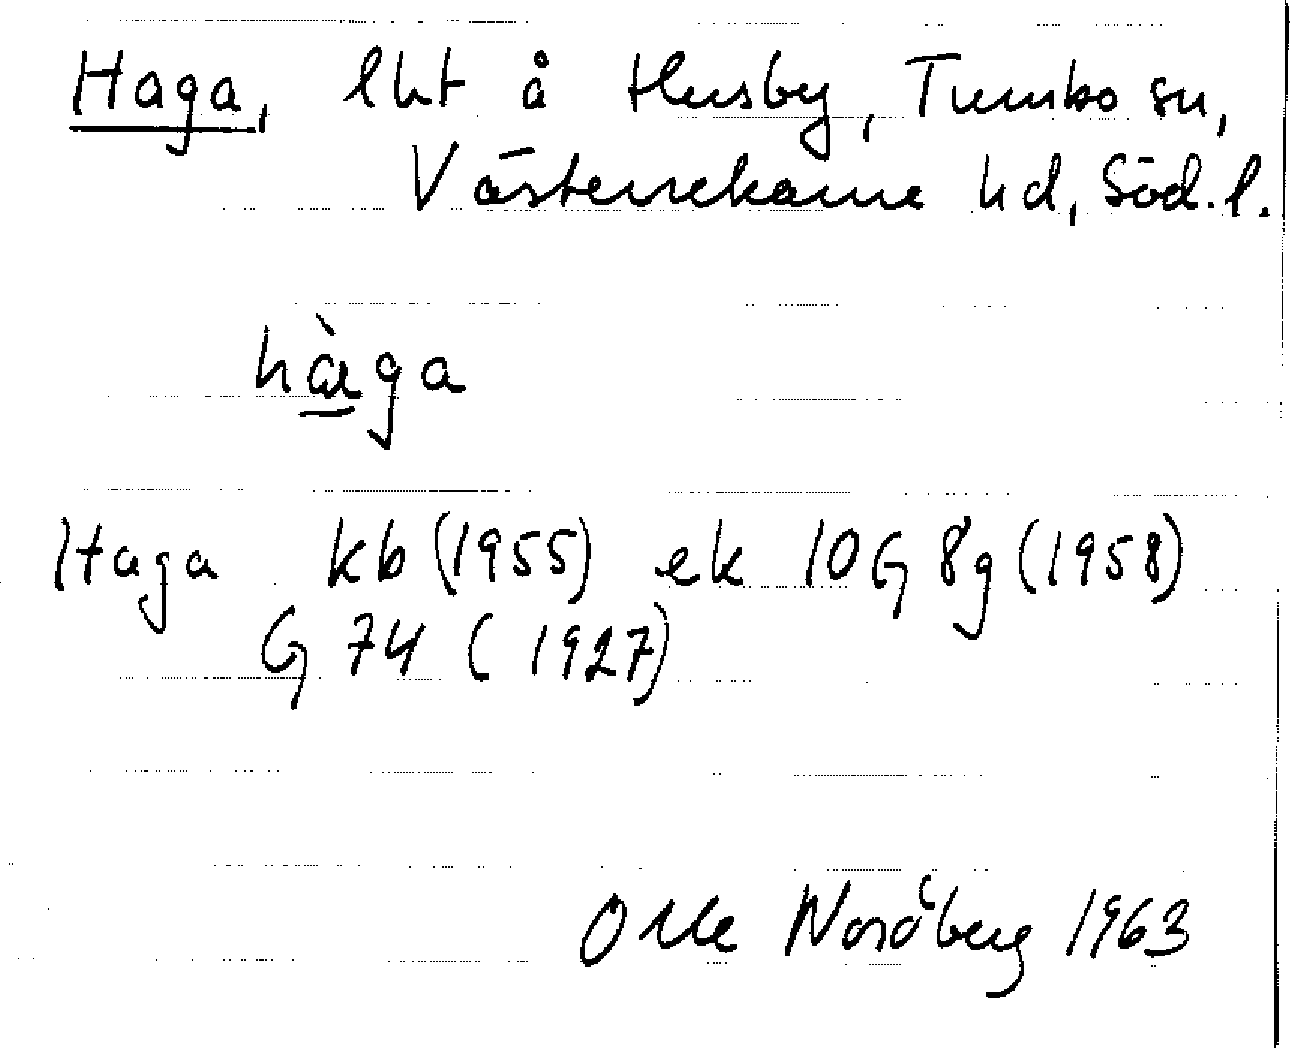 Haga, lht å Husby, Tumbo sn,
Västerrekarne hd, Söd.l.
hàga
Haga kb (1955) ek 10G 8g (1958)
G 74 (1927)
Olle Nordberg 1963